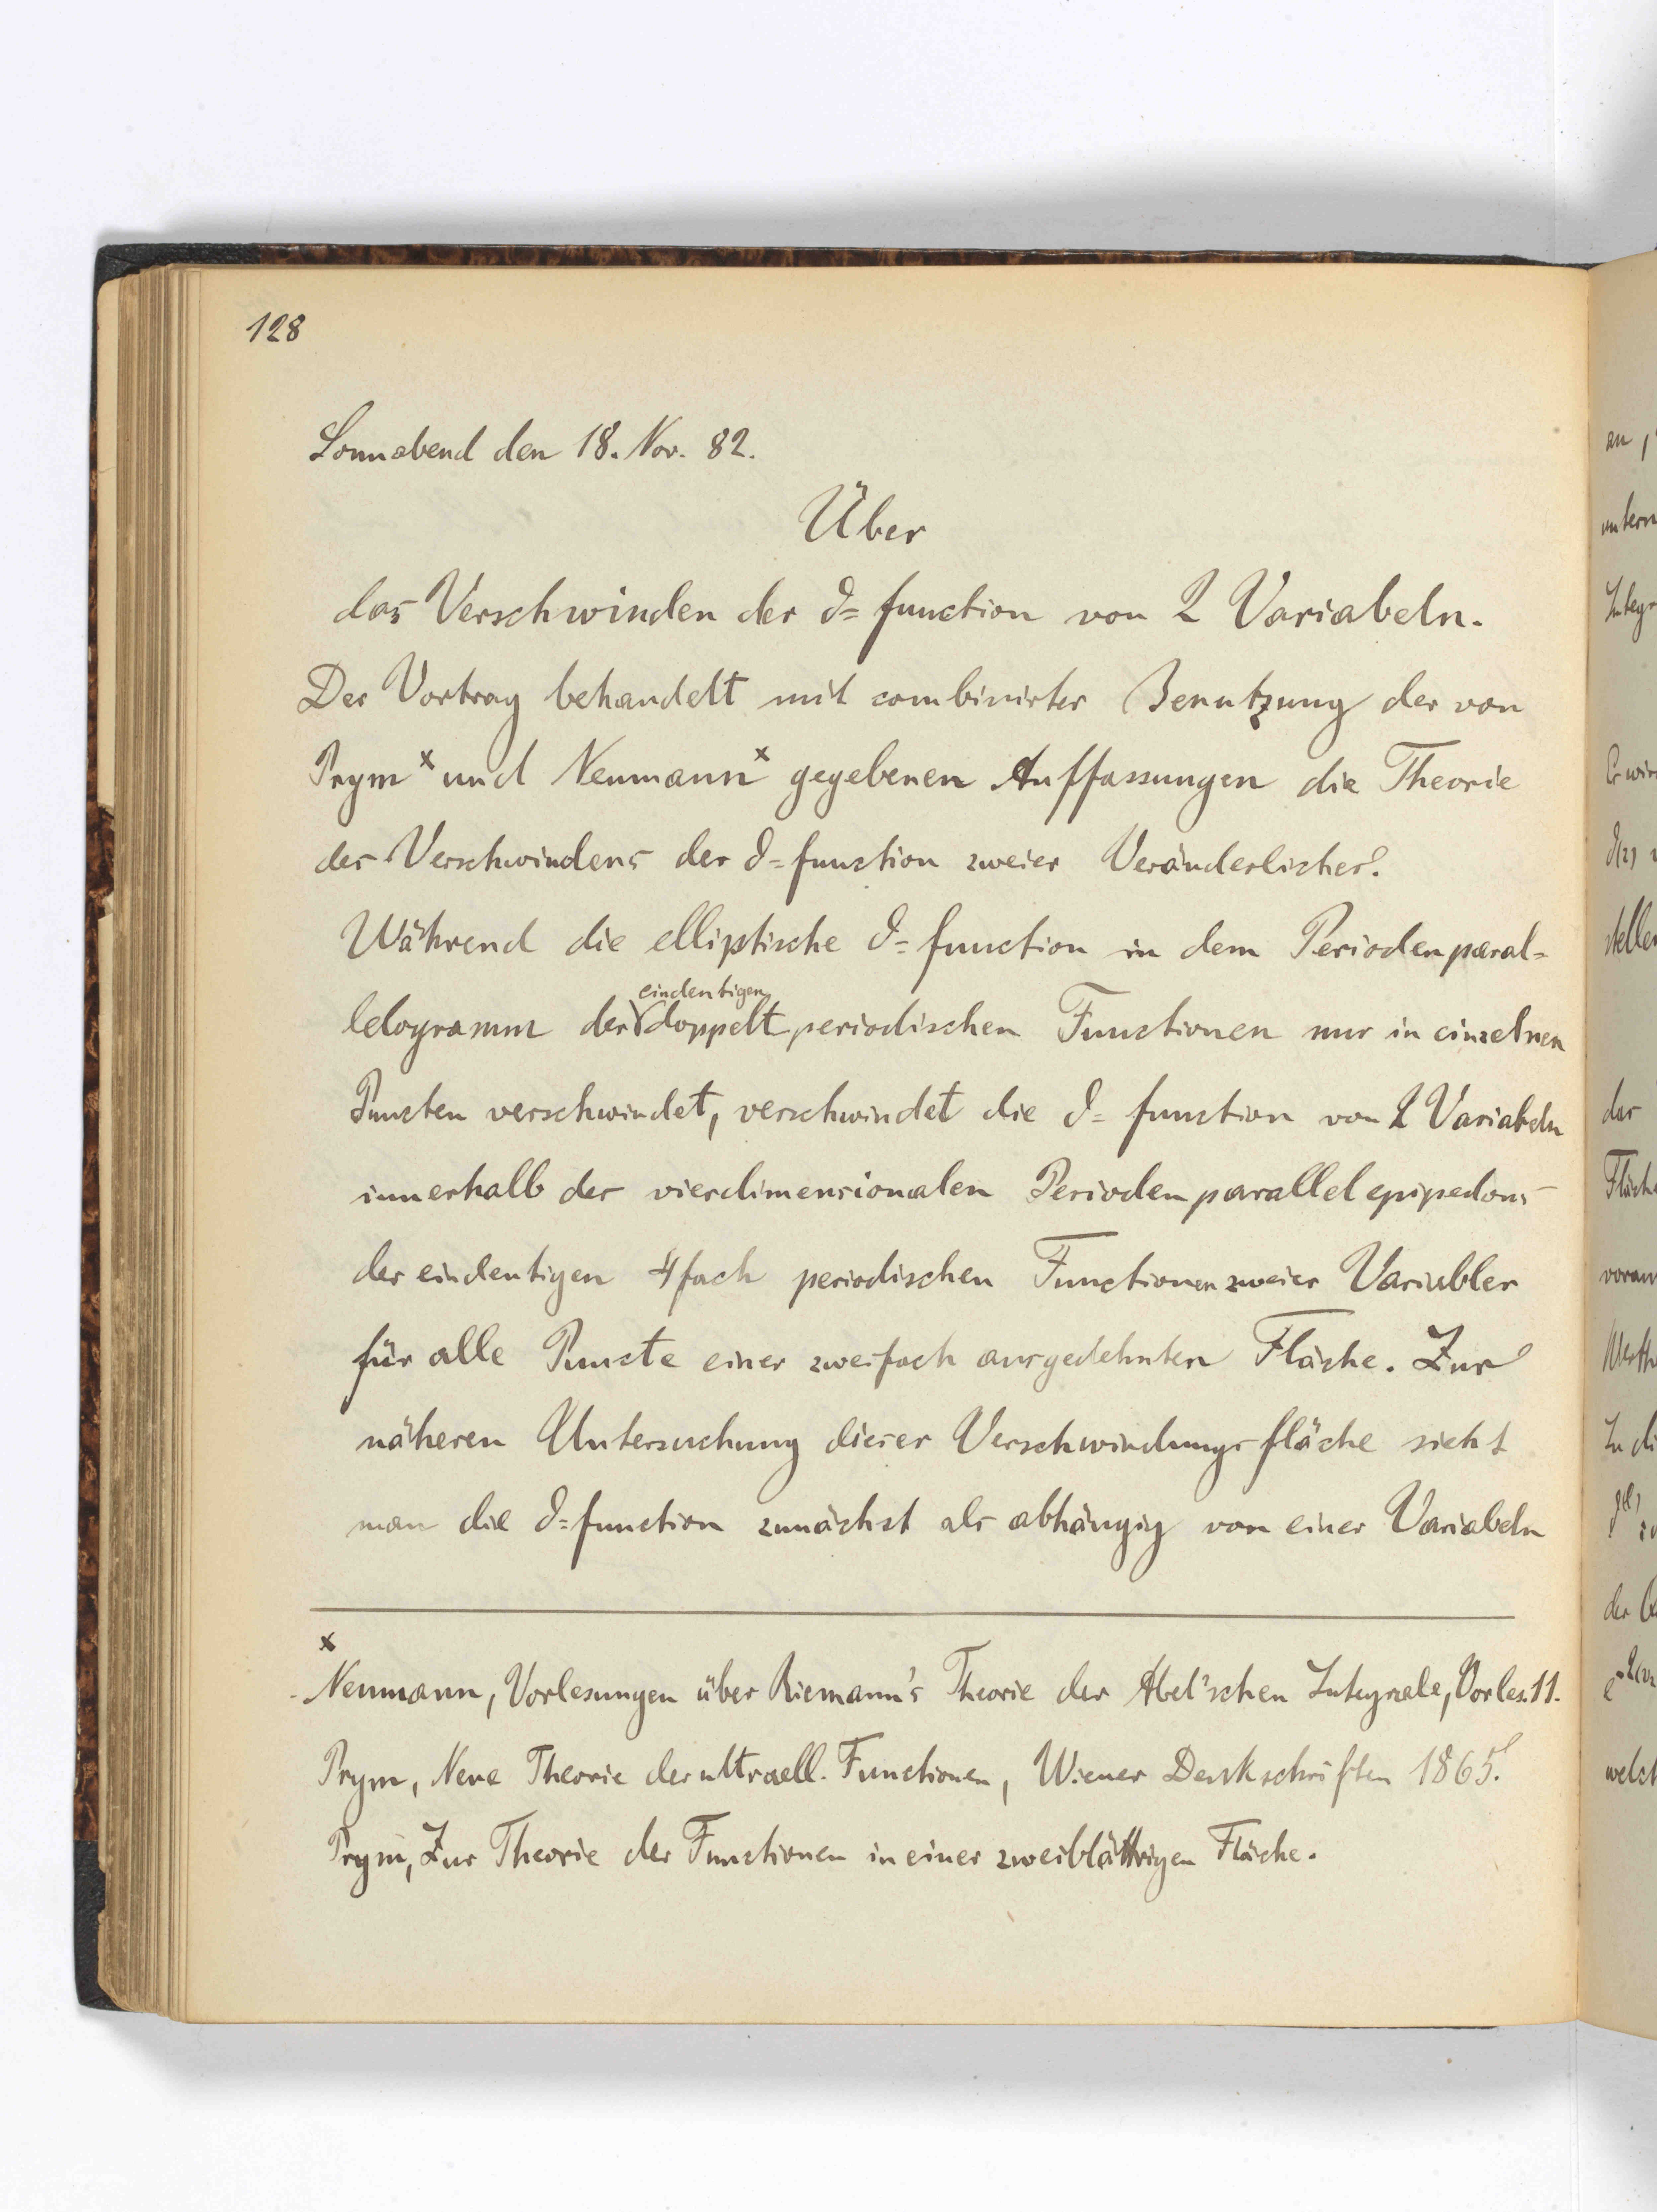 128
Sonnabend den 18. Nov. 82.
Über
das Verschwinden der ϑ=function von 2 Variabeln.
Der Vortrag behandelt mit combinirter Benutzung der von
Prym x und Neumann x gegebenen Auffassungen die Theorie
des Verschwindens der ϑ=function zweier Veränderlicher.
Während die elliptische ϑ=function in dem Periodenparal=
eindeutigen
lelogramm der doppelt periodischen Functionen nur in einzelnen
Puncten verschwindet, verschwindet die ϑ=function von 2 Variabeln
innerhalb des vierdimensionalen Periodenparallelepipedons
der eindeutigen 4fach periodischen Functionen zweier Variabler
für alle Puncte einer zweifach ausgedehnten Fläche. Zur
näheren Untersuchung dieser Verschwindungsfläche sieht
man die ϑ=function zunächst als abhängig von einer Variabeln
x
Neumann, Vorlesungen über Riemann's Theorie der Abel'schen Integrale, Vorles. 11.
Prym, Neue Theorie der ultraell. Functionen, Wiener Denkschriften 1865.
Prym, Zur Theorie der Functionen in einer zweiblättrigen Fläche.